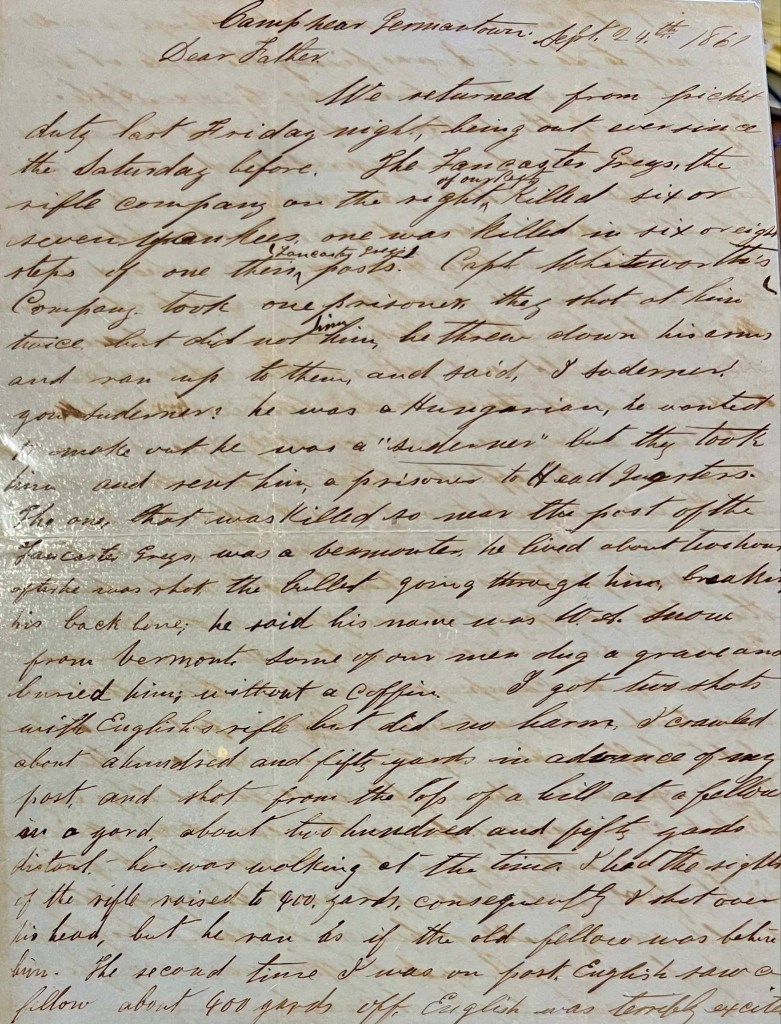 Camp near Germantown. Sept. 24.th 1861
Dear Father.
We returned from picket
duty last Friday night, being out ever since
the Saturday before. The Lancaster Greys, the
of our Regt
rifle company on the right, killed six or
seven yankees, one was killed in six or eight
(Lancaster Greys)
steps of one their posts. Capt Whitworth's
Company took one prisoner, they shot at him
twice but did not him, he threw down his arms
and ran up to them, and said, I suderner!
you suderner? he was a Hungarian, he wanted
to make out he was a "suderner" but they took
him and sent him, a prisoner to Head Quarters.
The one, that was killed so near the post of the
Lancaster Greys, was a vermonter, he lived about two hours
after he was shot, the bullet going through him, breaking
his back bone; he said his name was W. A. Snow
from Vermont. Some of our men dug a grave and
buried him; without a coffin. I got two shots
with English's rifle but did no harm, I crawled
about a hundred and fifty yards in advance of my
post, and shot from the top of a hill at a fellow
in a yard, about two hundred and fifty yards
distant. he was walking at the time. I had the sights
of the rifle raised to 400. yards, consequently I shot over
his head, but he ran as if the old fellow was behind
him. The second time I was on post. English saw a
fellow about 400 yards off. English was terribly excit